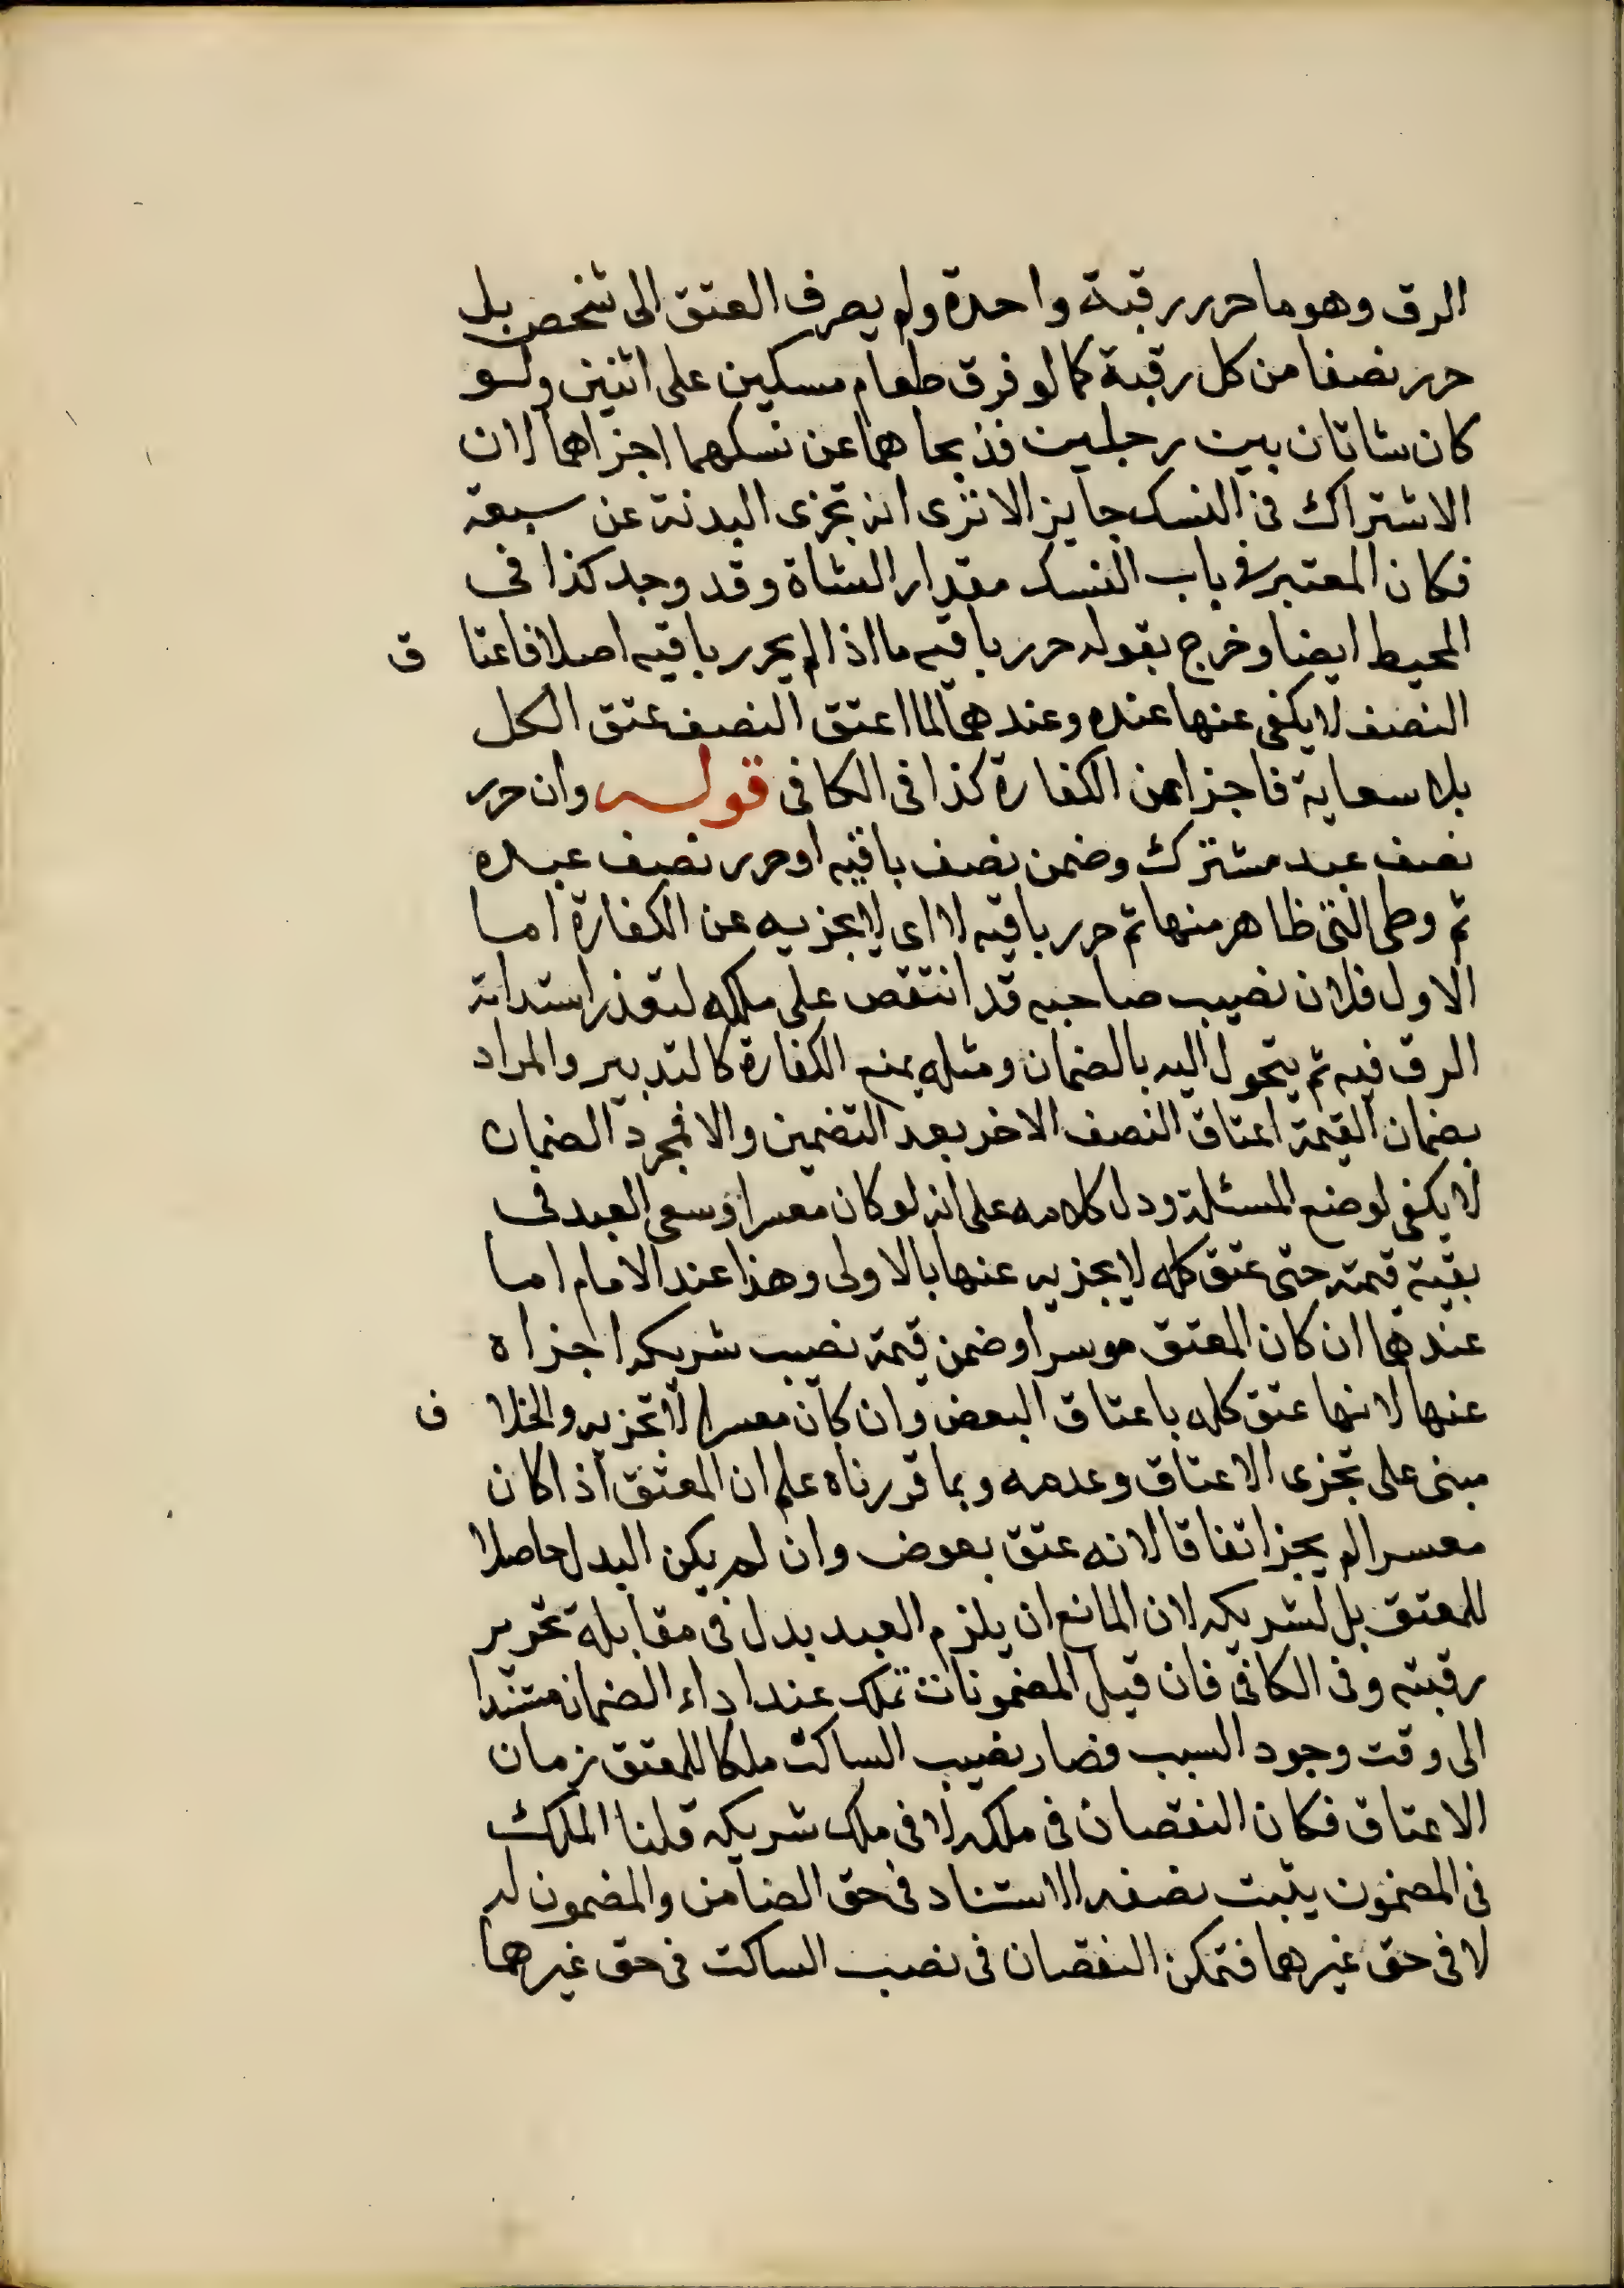 الرق وهو ما حرر رقبة واحدة ولم يصرف العتق الى شخص بل
حرر نصفا من كل رقبة كما لو فرق طعام مسكين على اثنين ولو
كان شاتان بين رجلين فذبحاهما عن نسكهما اجزاهما لان
الاشتراك فى النسك جايز الا ترى انه تجزى البدنة عن سبعة
فكان المعتبر فى باب النسك مقدار الشاة وقد وجد كذا فى
المحيط ايضا وخرج بقوله حرر باقيه ما اذا لم يحرر باقيه اصلا فاعتاق
النصف لا يكفى عنها عنده وعندهما لما اعتق النصف عتق الكل
بلا سعاية فاجزا عن الكفارة كذا فى الكافى قوله وان حرر
نصف عبد مشترك وضمن نصف باقيه او حرر نصف عبده
ثم وطى التى ظاهر منها ثم حرر باقيه لا اى لا يجزيه عن الكفارة اما
الاول فلان نصيب صاحبه قد انتقص على ملكه لتعذر استدامة
الرق فيه ثم يتحول اليه بالضمان ومثله يمنع الكفارة كالتدبير والمراد
بضمان القيمة اعتاق النصف الاخر بعد التضمين والا فمجرد الضمان
لا يكفى لوضع المسئلة ودل كلامه على انه لو كان معسرا وسعى العبد فى
بقية قيمته حتى عتق كله لا يجزيه عنها بالاولى وهذا عند الامام اما
عندهما ان كان المعتق موسرا وضمن قيمة نصيب شريكه اجزاه
عنها لانها عتق كله باعتاق البعض وان كان معسرا لا تجزيه والخلاف
مبنى على تجزى الاعتاق وعدمه وبما قررناه علم ان المعتق اذا كان
معسرا لم يجز اتفاقا لانه عتق بعوض وان لم يكن البدل حاصلا
للمعتق بل لشريكه لان المانع ان يلزم العبد بدل فى مقابلة تحرير
رقبته وفى الكافى فان قيل المضمونات تملك عند اداء الضمان مستندا
الى وقت وجود السبب فصار نصيب الساكت ملكا للمعتق زمان
الاعتاق فكان النقصان فى ملكه لا فى ملك شريكه قلنا الملك
فى المضمون يثبت بصفه الاستناد فى حق الضامن والمضمون له
لا فى حق غيرهما فتمكن النقصان فى نصيب الساكت فى حق غيرهما